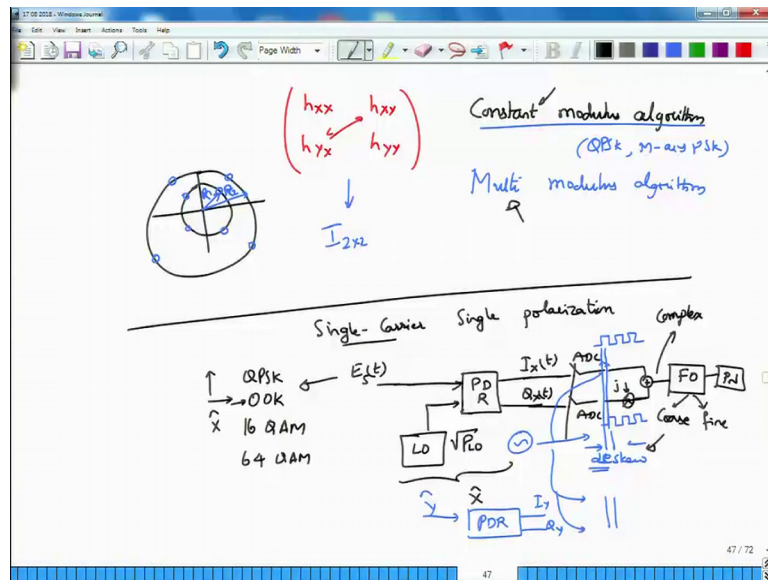 17 08 2018 - Windows Journal
File Edit View Insert Actions Tools Help
Page Width
B I
hxx hxy
hyx hyy
I 2x2
Constant modulus algorithm
(QPSK, M-ary PSK)
Multi modulus algorithm
Single-Carrier Single polarization
Complex
QPSK
OOK
16 QAM
64 QAM
x̂
Es(t)
PD
R
Ix(t)
Qx(t)
ADC
ADC
j
FO
PN
Coarse fine
LO
√PLO
deskew
x̂
ŷ
PDR
Iy
Qy
47 / 72
47